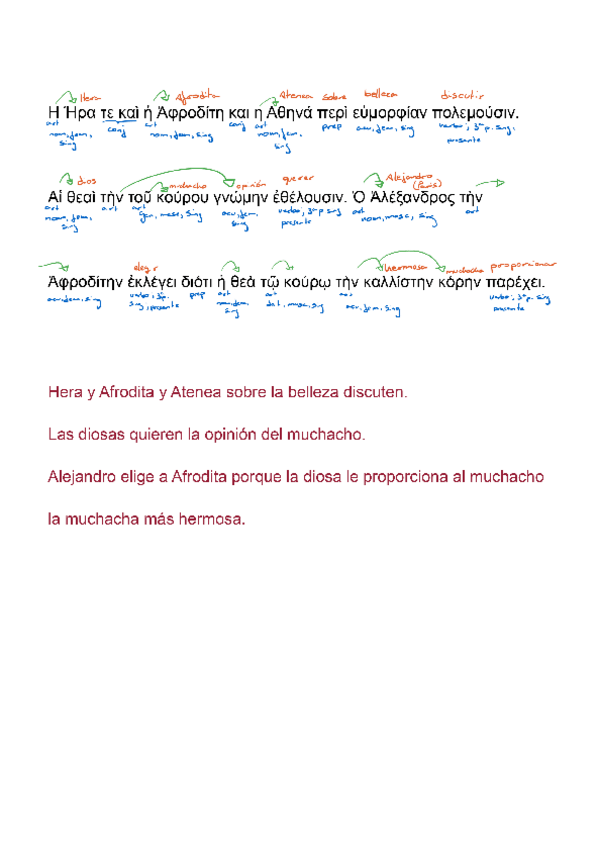 Hera Afrodita Atenea sobre belleza discutir
Η Ήρα τε καὶ ἡ Ἀφροδίτη και η Αθηνά περὶ εὐμορφίαν πολεμούσιν.
art conj art conj art prep acu, fem, sing verbo, 3ª p. sing,
nom, fem, nom, fem, sing nom, fem, presente
sing sing
dios muchacho opinión querer Alejandro
(Paris)
Αἱ θεαὶ τὴν τοῦ κούρου γνώμην ἐθέλουσιν. Ὁ Ἀλέξανδρος τὴν
art art art gen, masc, sing acu, fem, verbo, 3ª p sing art nom, masc, sing art
nom, fem, sing presente
sing
elegir hermosa muchacha proporcionar
Ἀφροδίτην ἐκλέγει διότι ἡ θεὰ τῷ κούρῳ τὴν καλλίστην κόρην παρέχει.
acu, fem, sing verbo, 3ª p. prep art art art verbo, 3ª p. sing
sing, presente nom, fem, dat, masc, sing acu, fem, sing presente
sing
Hera y Afrodita y Atenea sobre la belleza discuten.
Las diosas quieren la opinión del muchacho.
Alejandro elige a Afrodita porque la diosa le proporciona al muchacho
la muchacha más hermosa.